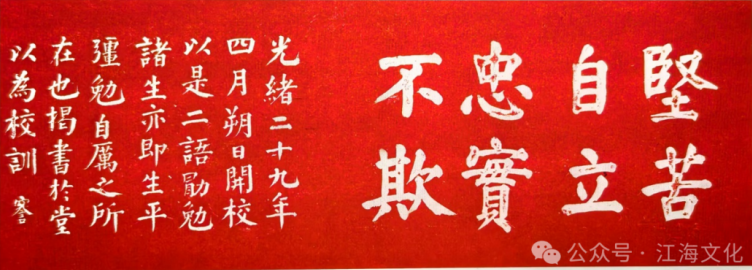 堅苦
自立
忠實
不欺
光緒二十九年
四月朔日開校
以是二語勖勉
諸生亦即生平
彊勉自厲之所
在也揭書於堂
以為校訓
謇
公众号·江海文化